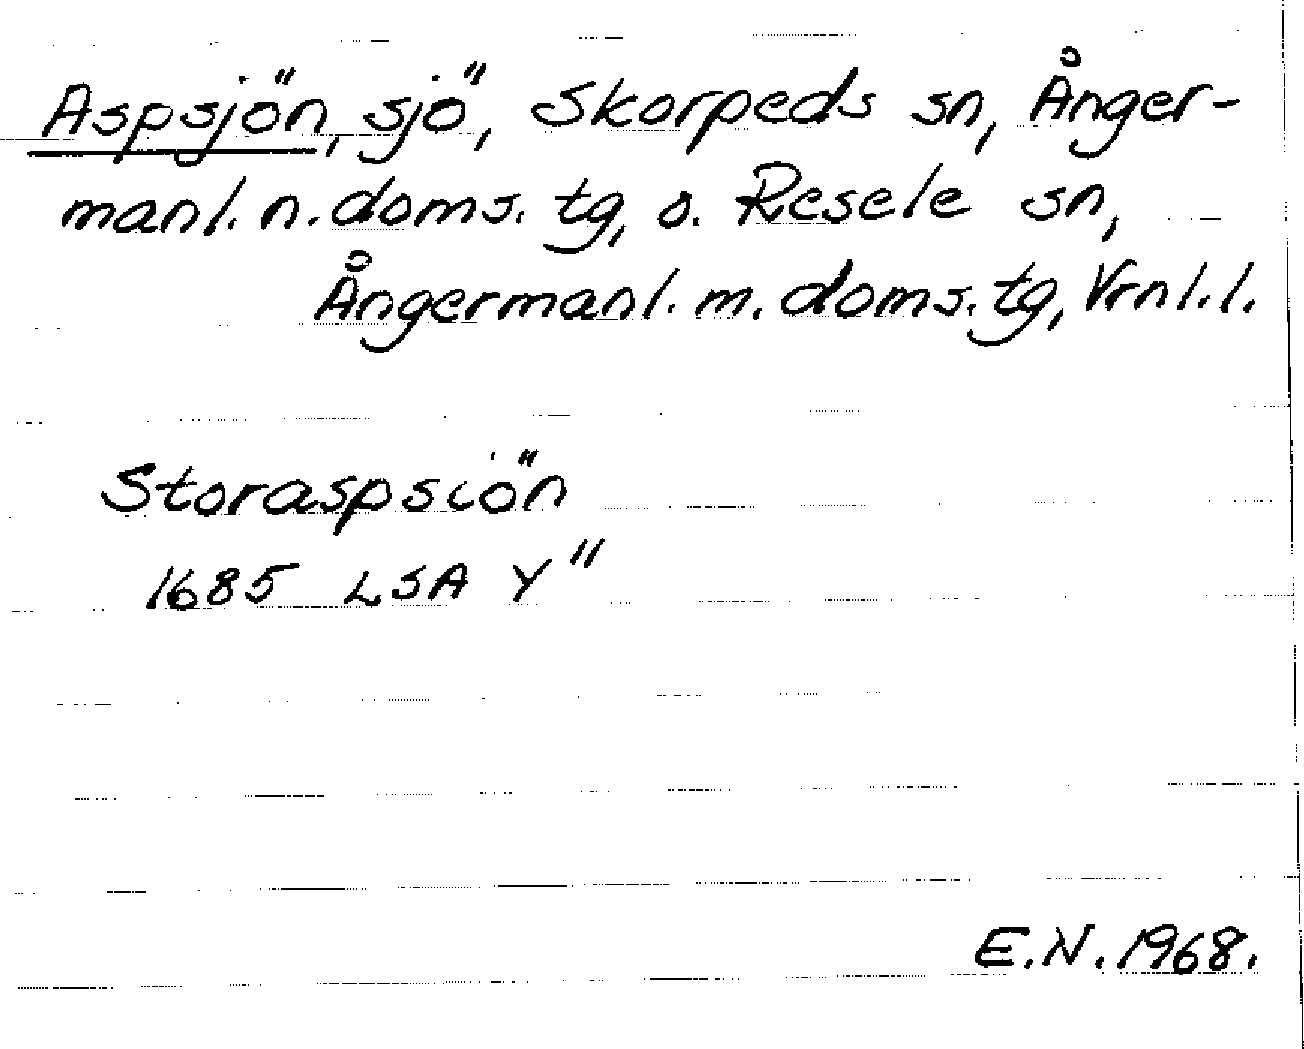 Aspsjön, sjö, Skorpeds sn, Ånger-
manl. n. doms. tg, o. Resele sn,
Ångermanl. m. doms. tg, Vrnl. l.
Storaspsiön
1685 LSA Y"
E.N. 1968.